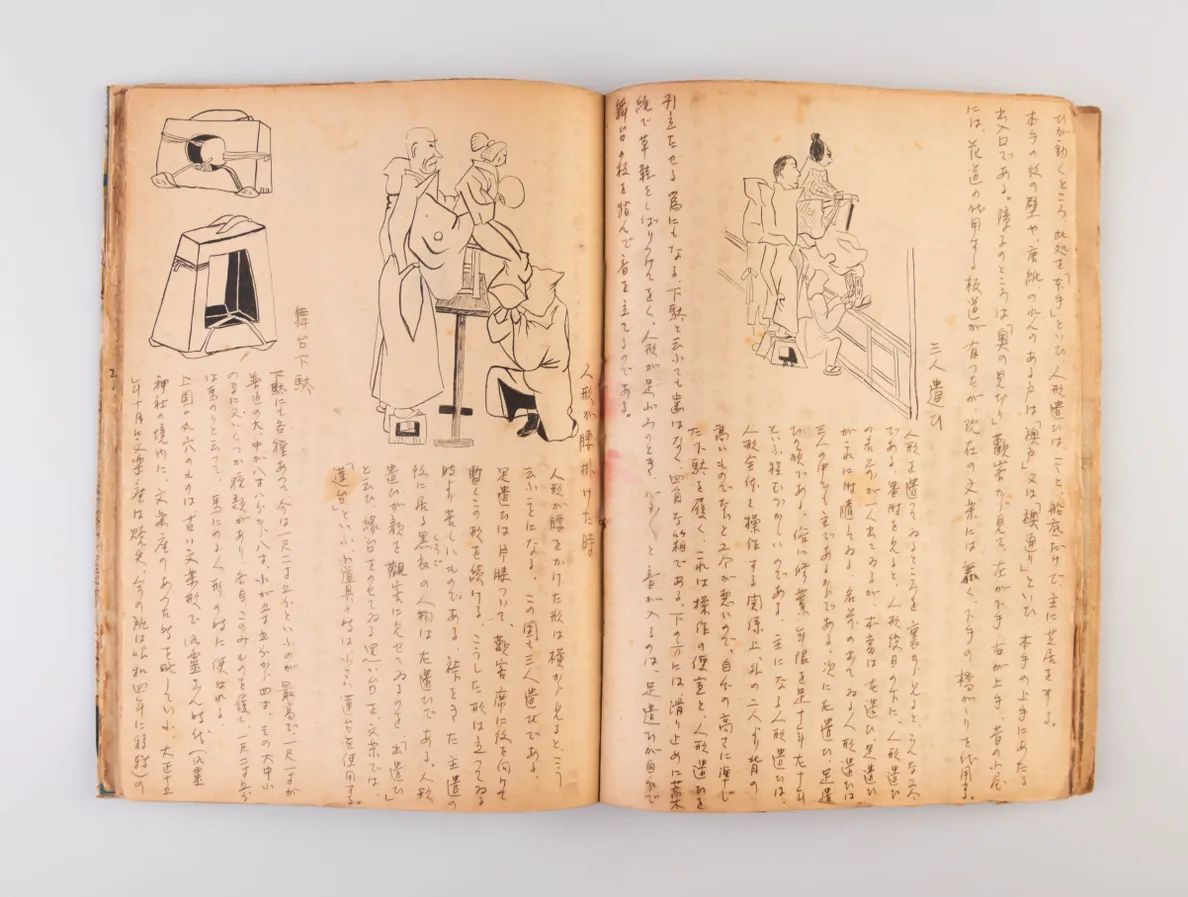 ひが動くところ、此処を「本手」といひ、人形遣ひは、こゝと、船底だけで、主に芝居をする。
本手の後の壁や、座敷の、のれんのある戸は「襖戸」又は「襖通り」といひ、本手の上手にあたる
出入口である。障子のところは「奥の見切り」観客から見て、左が下手、右が上手、昔の小屋
には、花道の代用する板道が有つたが、現在の文楽には無く、下手の橋がゝりを代用する。
三人遣ひ
人形を遣つてゐるところを裏から見ると、こんな工合
である。番附を見ると、人形役目の下に、人形遣ひ
の名前が一人出てゐるが、本当は左遣ひ、足遣ひ
がこれに附随してゐる、名前の出てゐる人形遣ひは
三人の中でも主である
ひの順である。俗に修業年限を足十年左十年
といふ程むつかしいのである。主になる人形遣ひは、
人形全体を操作する関係上、外の二人より背の
高いものでないと工合が悪いので、自分の高さに準じ
た下駄を履く、これは操作の便宜と、人形遣ひを
引立たせる為にもなる、下駄と云ふても歯はなく、四角な箱である。下の方には、滑り止めに藁
縄で草鞋をしばりつけておく、人形が足ぶみのとき、と音が入るのは、足遣ひが自分で
舞台の板を踏んで音を立てるのである。
人形が腰掛けた時
人形が腰をかけた形は横から見ると、こう
云ふことになる。この図も三人遣ひである。
足遣ひは片膝ついて、観客席に後を向けて
暫くこの形を続ける。こうした形は立つてゐる
時より苦しいものである。裃をきた主遣の
後に居る黒衣の人物は左遣ひである。人形
遣ひが顔を観客に見せてゐるのを「出遣ひ」
と云ひ、縁台をのせてゐる黒い台を、文楽では、
「蓮台」といふ、小道具の時は小さい蓮台を使用する。
舞台下駄
下駄にも各種あつて、今は一尺二寸五分といふのが最高で、一尺一寸が
普通の大中が八寸八分から八寸、小が五寸五分から四寸、その大中小
のうちにいくつか種類があり、各自このみのものを履く、一尺二寸五分
は馬のりと云つて、馬にのる人形の時に使はれる。
上図の丸穴のものは古い文楽形で、御霊さん時代(御霊
神社の境内に、文楽座のあつた時を略していふ、大正十五
年十一月に文楽座は焼失、今の所は昭和四年に移転)の